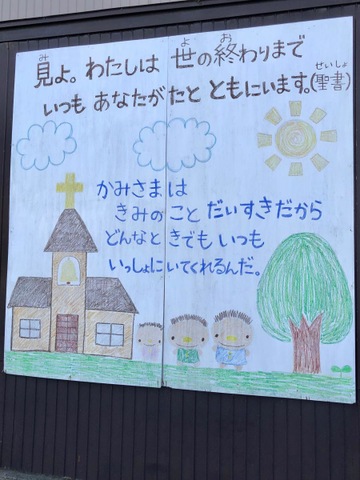 見よ。わたしは 世の終わりまで
いつも あなたがたと ともにいます。(聖書)
かみさまは
きみのこと だいすきだから
どんなときでも いつも
いっしょにいてくれるんだ。